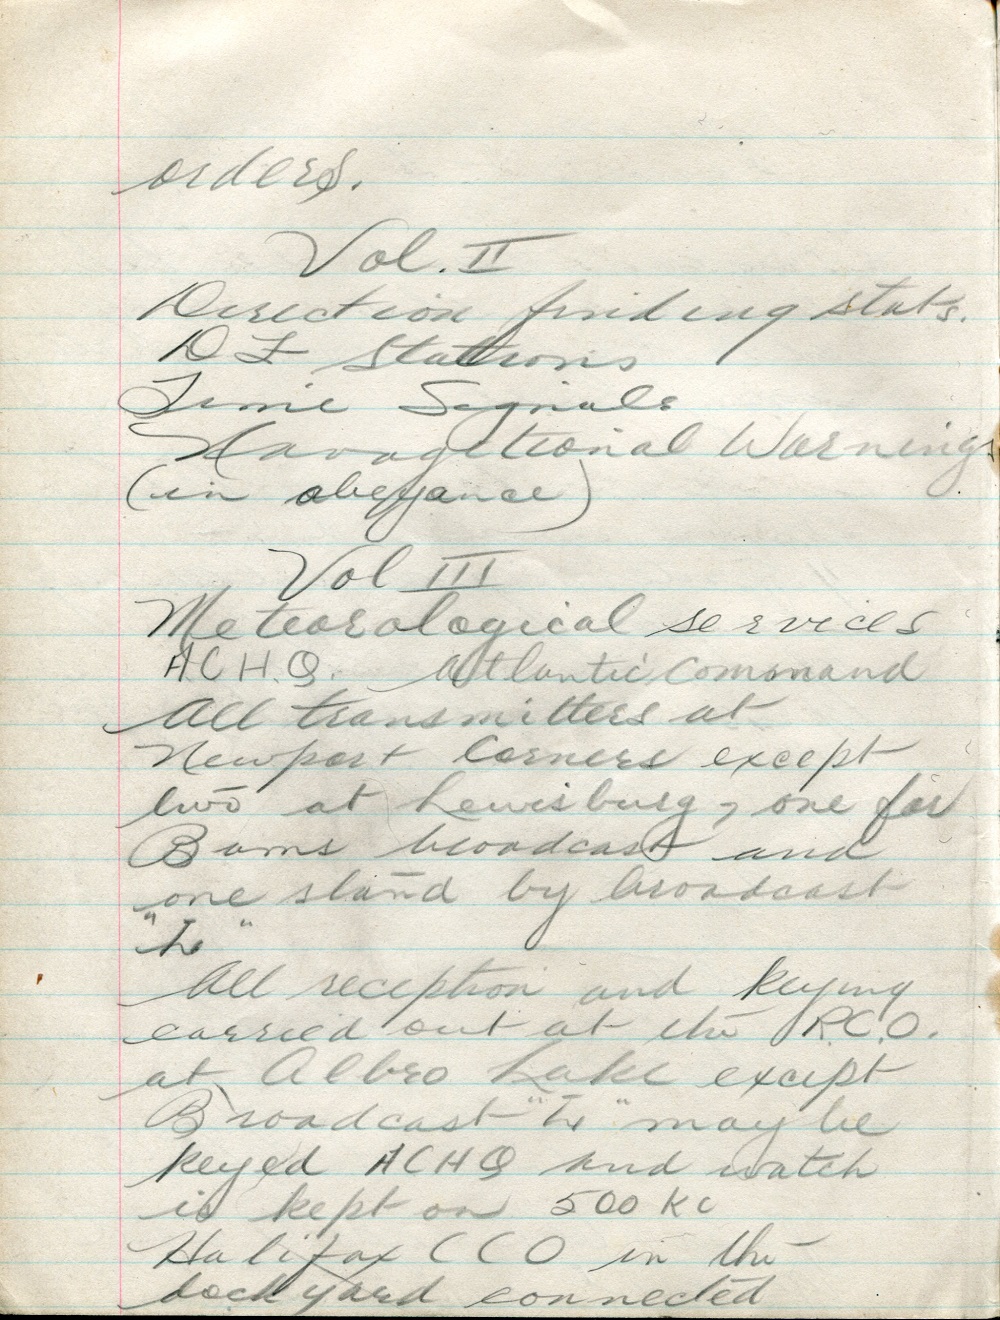 orders.
Vol. II
Direction finding stats.
DF Stations
Time Signals
Navagetional Warnings
(in abeyance)
Vol III
Meteorological services
ACHQ. Atlantic Command
All transmitters at
Newport Corners except
two at Lewisburg, one for
Bams broadcast and
one stand by broadcast
"L"
All reception and keying
carried out at the R.C.O.
at Albro Lake except
Broadcast "L" may be
keyed ACHQ and watch
is kept on 500 KC
Halifax CCO in the
dockyard connected